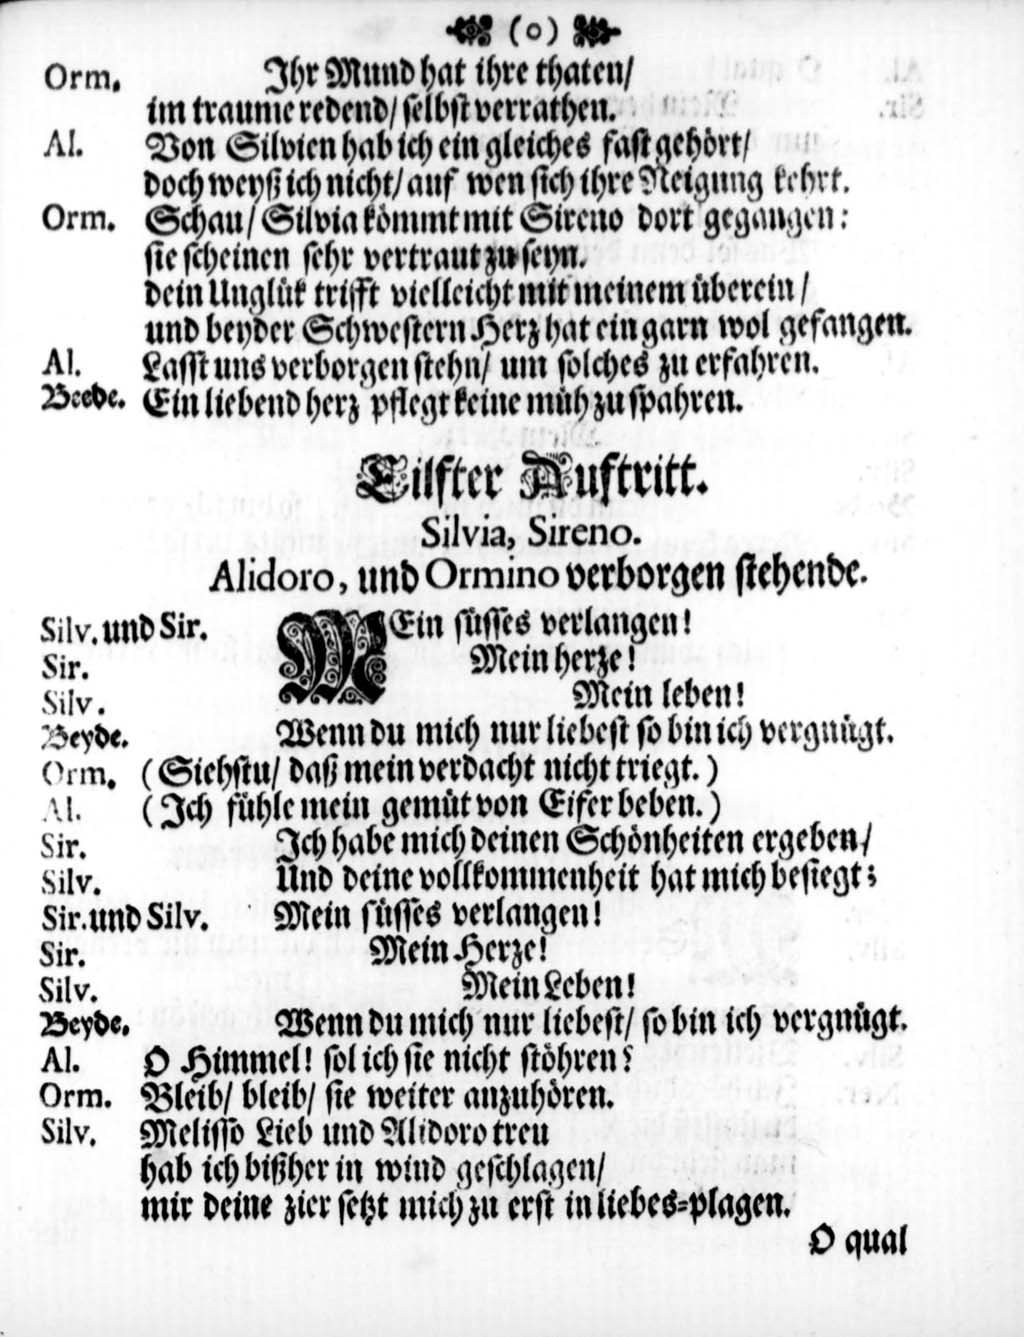 (o)
Orm. Ihr Mund hat ihre thaten/
im traume redend/ selbst verrathen.
Al. Von Silvien hab ich ein gleiches fast gehört/
doch weyß ich nicht/ auf wen sich ihre Neigung kehrt.
Orm. Schau/ Silvia kömmt mit Sireno dort gegangen:
sie scheinen sehr vertraut zu seyn.
dein Unglük trifft vielleicht mit meinem überein/
und beyder Schwestern Herz hat ein garn wol gefangen.
Al. Lasst uns verborgen stehn/ um solches zu erfahren.
Beede. Ein liebend herz pflegt keine müh zu spahren.
Eilfter Auftritt.
Silvia, Sireno.
Alidoro, und Ormino verborgen stehende.
Silv. und Sir. MEin süsses verlangen!
Sir. Mein herze!
Silv. Mein leben!
Beyde. Wenn du mich nur liebest so bin ich vergnügt.
Orm. (Siehstu/ daß mein verdacht nicht triegt.)
Al. (Ich fühle mein gemüt von Eifer beben.)
Sir. Ich habe mich deinen Schönheiten ergeben/
Silv. Und deine vollkommenheit hat mich besiegt;
Sir. und Silv. Mein süsses verlangen!
Sir. Mein Herze!
Silv. Mein Leben!
Beyde. Wenn du mich nur liebest/ so bin ich vergnügt.
Al. O Himmel! sol ich sie nicht stöhren?
Orm. Bleib/ bleib/ sie weiter anzuhören.
Silv. Melisso Lieb und Alidoro treu
hab ich bißher in wind geschlagen/
mir deine zier setzt mich zu erst in liebes-plagen.
O qual